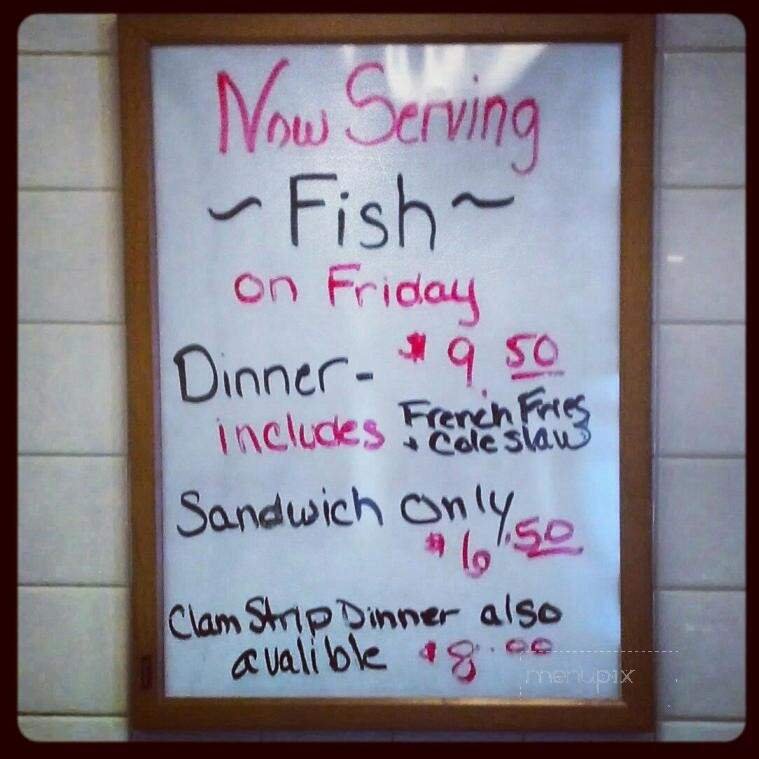 Now Serving
~ Fish ~
on Friday
Dinner - $9.50
includes French Fries
+ Coleslaw
Sandwich only
$6.50
Clam Strip Dinner also
avalible $8.00
menupix